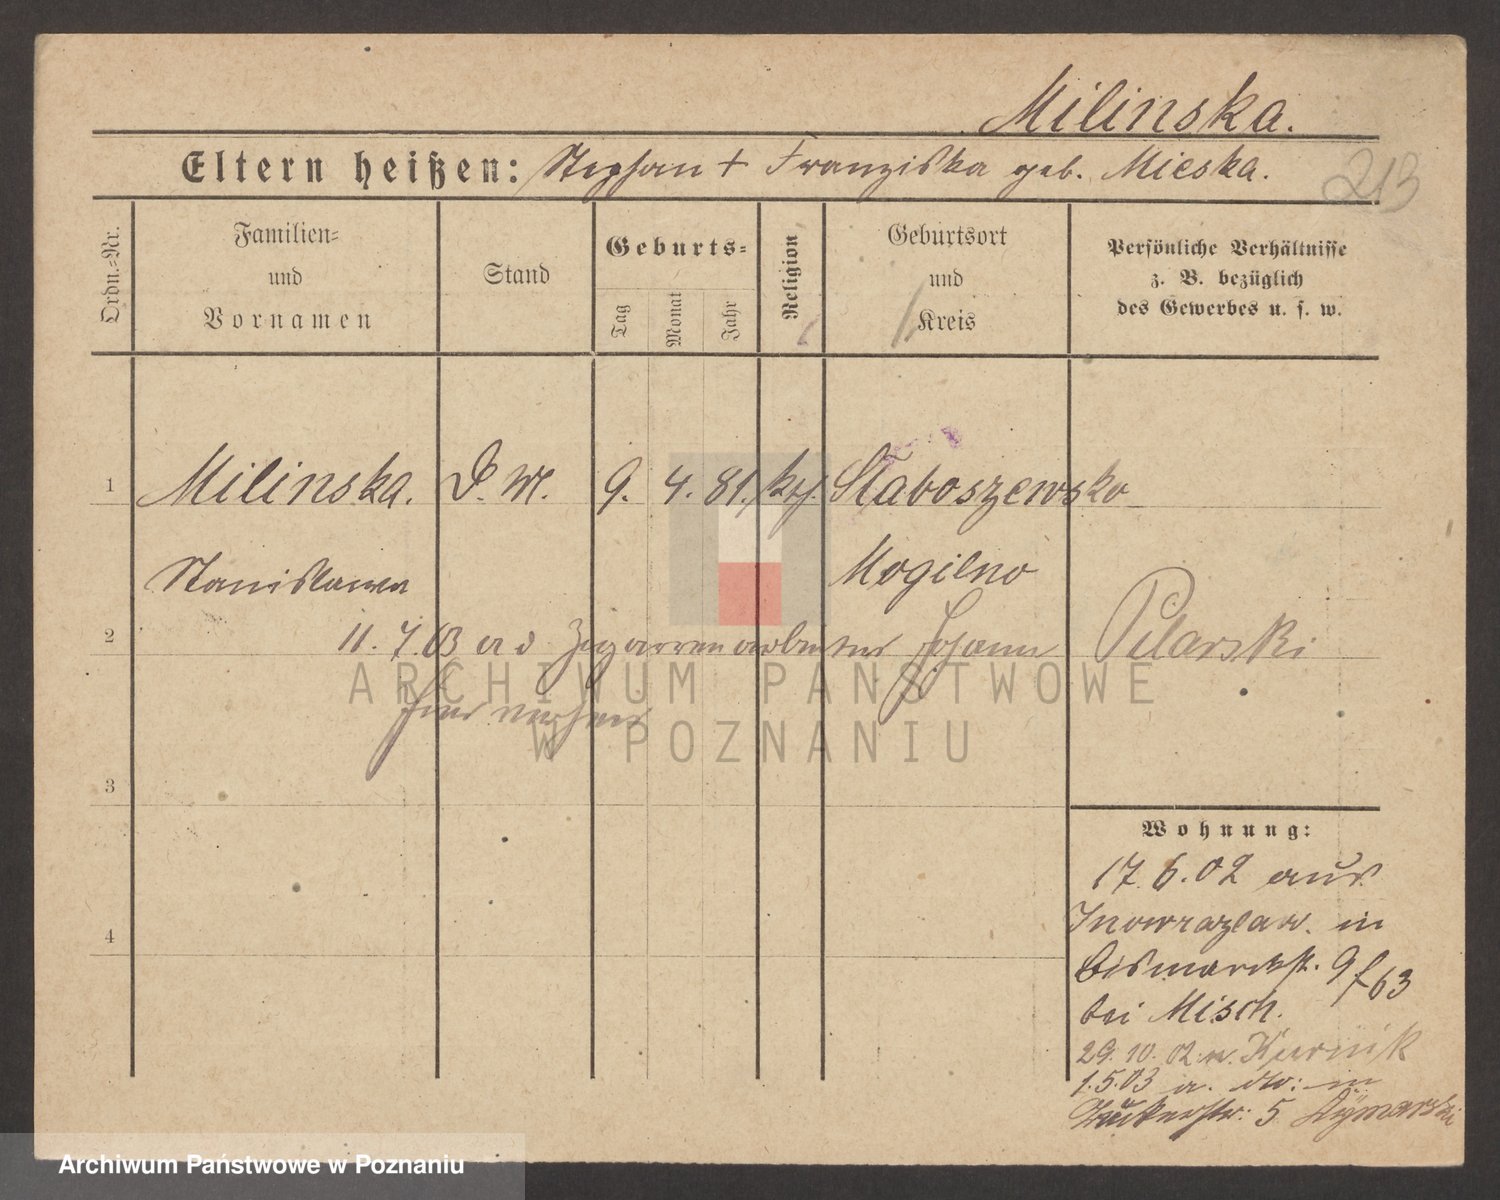 Milinska.
Eltern heißen: Stephan + Franziska geb. Mieska.
213
Ordn.-Nr.
Familien-
und
Vornamen
Stand
Geburts-
Tag
Monat
Jahr
Religion
Geburtsort
und
Kreis
Persönliche Verhältnisse
z. B. bezüglich
des Gewerbes u. s. w.
1 Milinska. D. M. 9. 4. 81. kth. Staboszewsko
Stanislawa Mogilno
2 11. 7. 03 a d Zigarrenarbeiter Johann Pilarski
hier verheir
ARCHIWUM PAŃSTWOWE
W POZNANIU
3
4
Wohnung:
17. 6. 02 aus
Inowrazlaw. in
Bismarckst. 9 f 63
bei Misch.
29. 10. 02 n. Kurnik
1. 5. 03 a. do: in
5
Archiwum Państwowe w Poznaniu